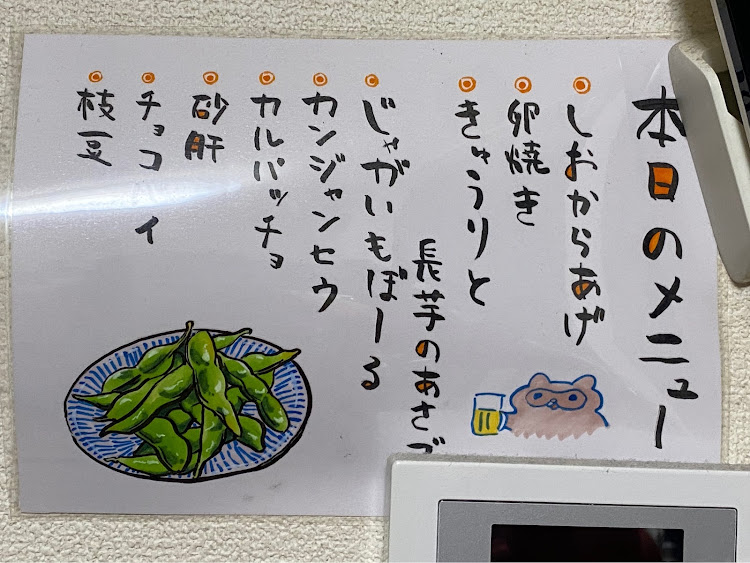 本日のメニュー
しおからあげ
卵焼き
きゅうりと
長芋のあさづ
じゃがいもぼーる
カンジャンセウ
カルパッチョ
砂肝
チョコパイ
枝豆